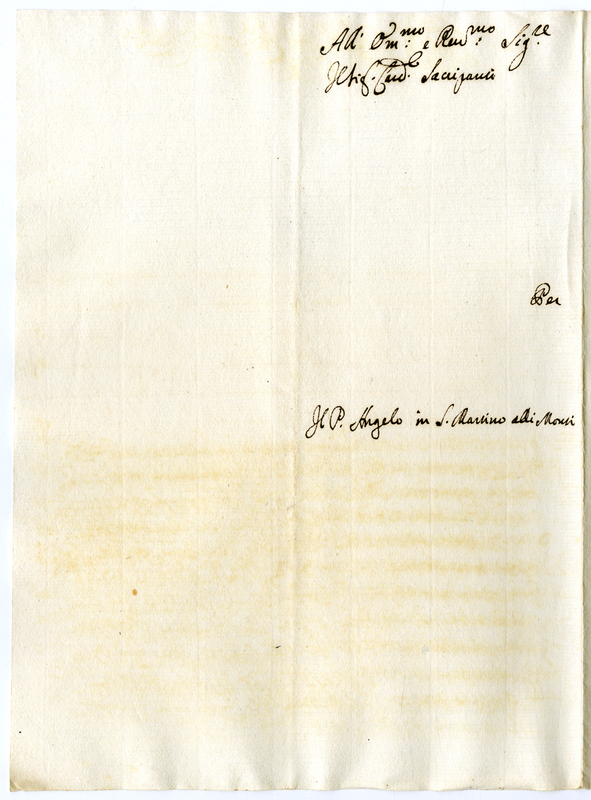 All' Em:mo e Rev:mo Sig:re
Il Sig: Card: Sacripanti
Per
Il P. Angelo in S. Martino alli Monti